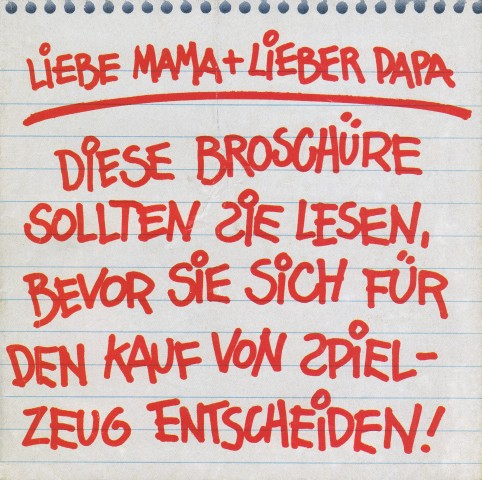 LiEBE MAMA+LiEBER PAPA
DiESE BROSCHÜRE
SOLLTEN SiE LESEN,
BEVOR SiE SiCH FÜR
DEN KAUF VON SPiEL-
ZEUG ENTSCHEiDEN!